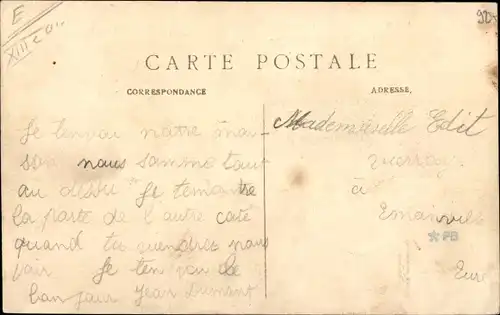 E
XIII e
CARTE POSTALE
CORRESPONDANCE
ADRESSE.
Je tenvoi natre mai
son nous somme tout
au dessu Je temontre
la parte de l'autre caté
quand tu viendres nous
voir Je ten voi le
bonjour Jean Dumont
Mademoiselle Edit
à
Emanville
*PB
Eure